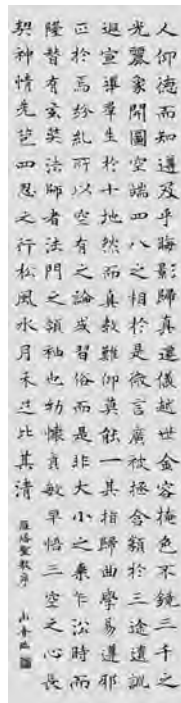 人仰德而知遵及乎晦影歸真遷儀越世金容掩色不鏡三千之
光麗象開圖空端四八之相於是微言廣被拯含類於三途遺訓
遐宣導羣生於十地然而真教難仰莫能一其指歸曲學易遵邪
正於焉紛糺所以空有之論或習俗而是非大小之乘乍沿時而
隆替有玄奘法師者法門之領袖也幼懷貞敏早悟三空之心長
契神情先苞四忍之行松風水月未足比其清
雁塔聖教序